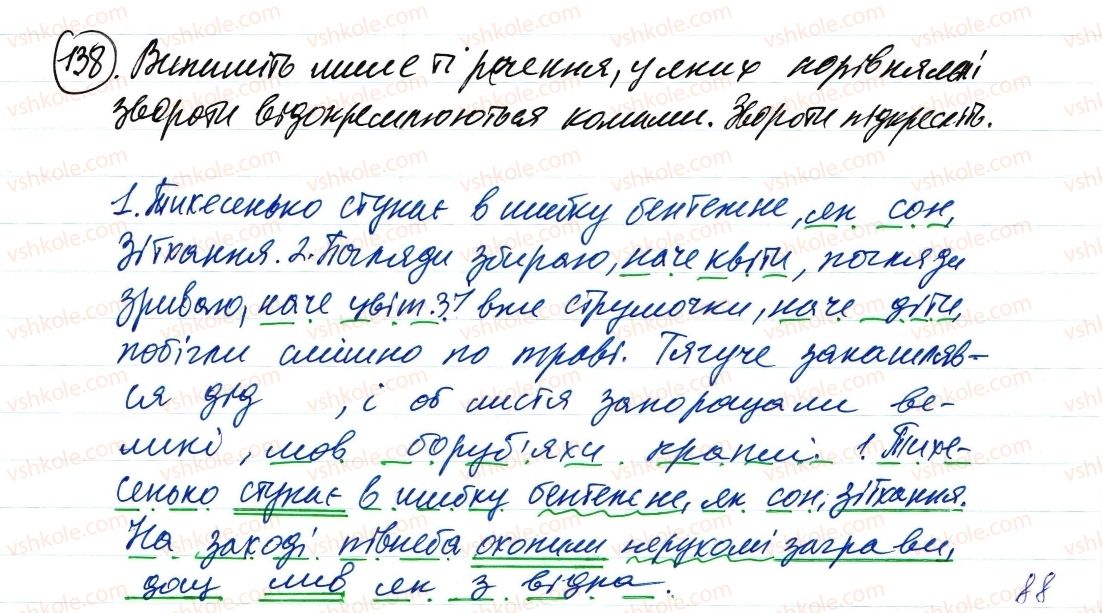 138. Випишіть лише ті речення, у яких порівняльні
звороти відокремлюються комами. Звороти підкресліть.
1. Тихесенько ступає в шибку бентежне, як сон,
зітхання. 2. Погляди збираю, наче квіти, погляди
зриваю, наче цвіт. 3. І вже струмочки, наче діти,
побігли смішно по траві. Тягуче закашляв-
ся дід , і об листя запорощали ве-
ликі, мов боруб'яхи краплі. 1. Тихе-
сенько ступає в шибку бентежне, як сон, зітхання.
На заході півнеба охопили нерухомі заграви,
дощ лив як з відра.
88